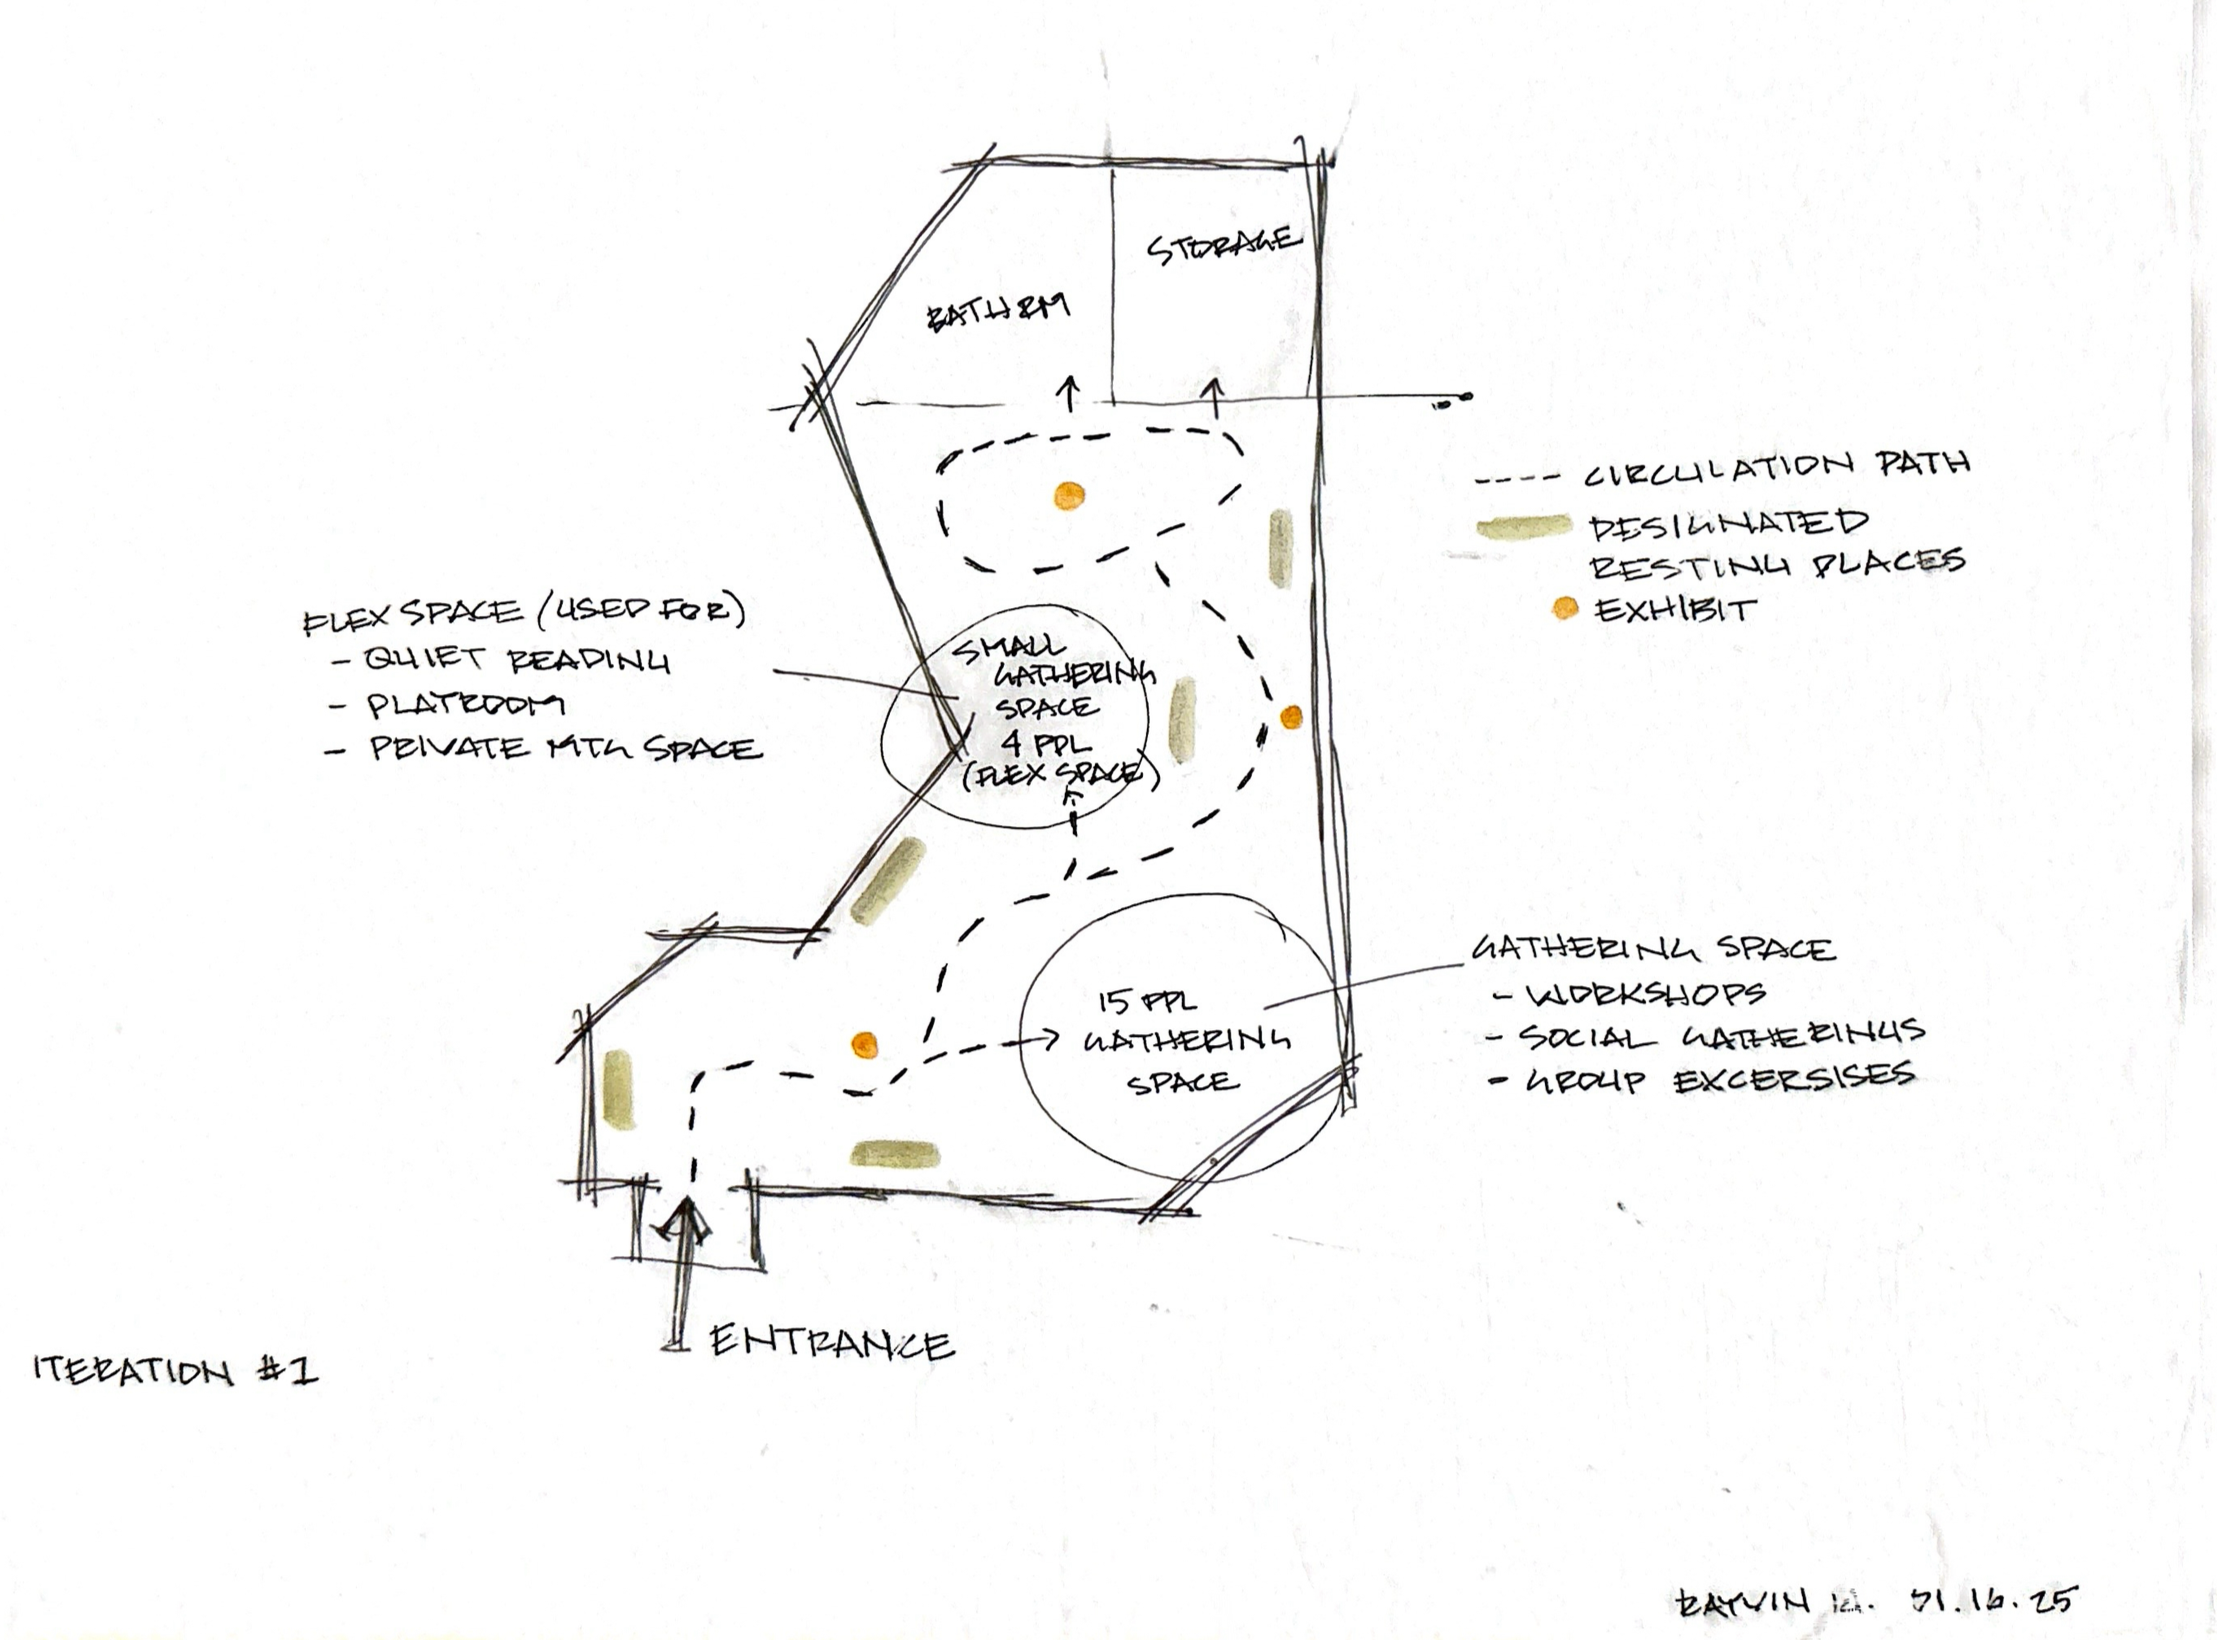 STORAGE
BATHRM
---- CIRCULATION PATH
DESIGNATED
RESTING PLACES
EXHIBIT
FLEX SPACE (USED FOR)
- QUIET READING
- PLAYROOM
- PRIVATE MTG SPACE
SMALL
GATHERING
SPACE
4 PPL
(FLEX SPACE)
GATHERING SPACE
- WORKSHOPS
- SOCIAL GATHERINGS
- GROUP EXCERSISES
15 PPL
GATHERING
SPACE
ENTRANCE
ITERATION #1
01.16.25